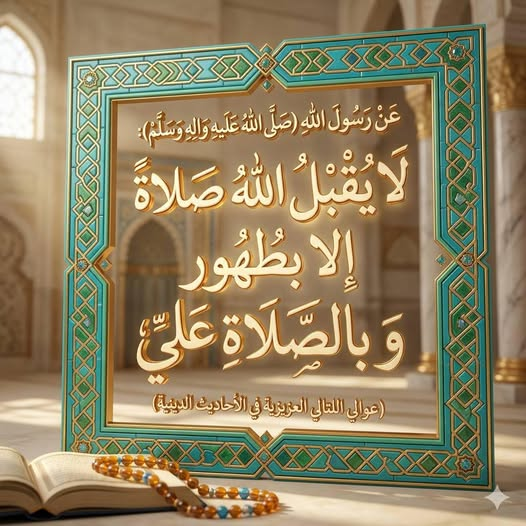 عَنْ رَسُولَ اللهِ (صَلَّى اللهُ عَلَيهِ وَالِهِ وَسَلَّمْ):
لَا يُقْبْلُ اللهُ صَلاةً
إِلا بطُهُور
وَبالصَّلَاةِ عَليِّ
(عوالي اللتالي العزيزية في الأحاديث الدينية)